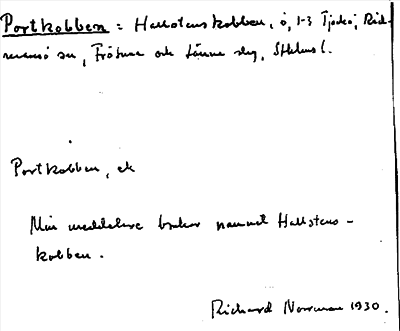 Portkobben = Hallstenskobben, ö, 1-3 Tjockö, Räd-
mansö sn, Frötuna och Länna skg, Sthlms l.
Portkobben, ek
Min meddelare brukar namnet Hallstens-
kobben.
Richard Norrman 1930.